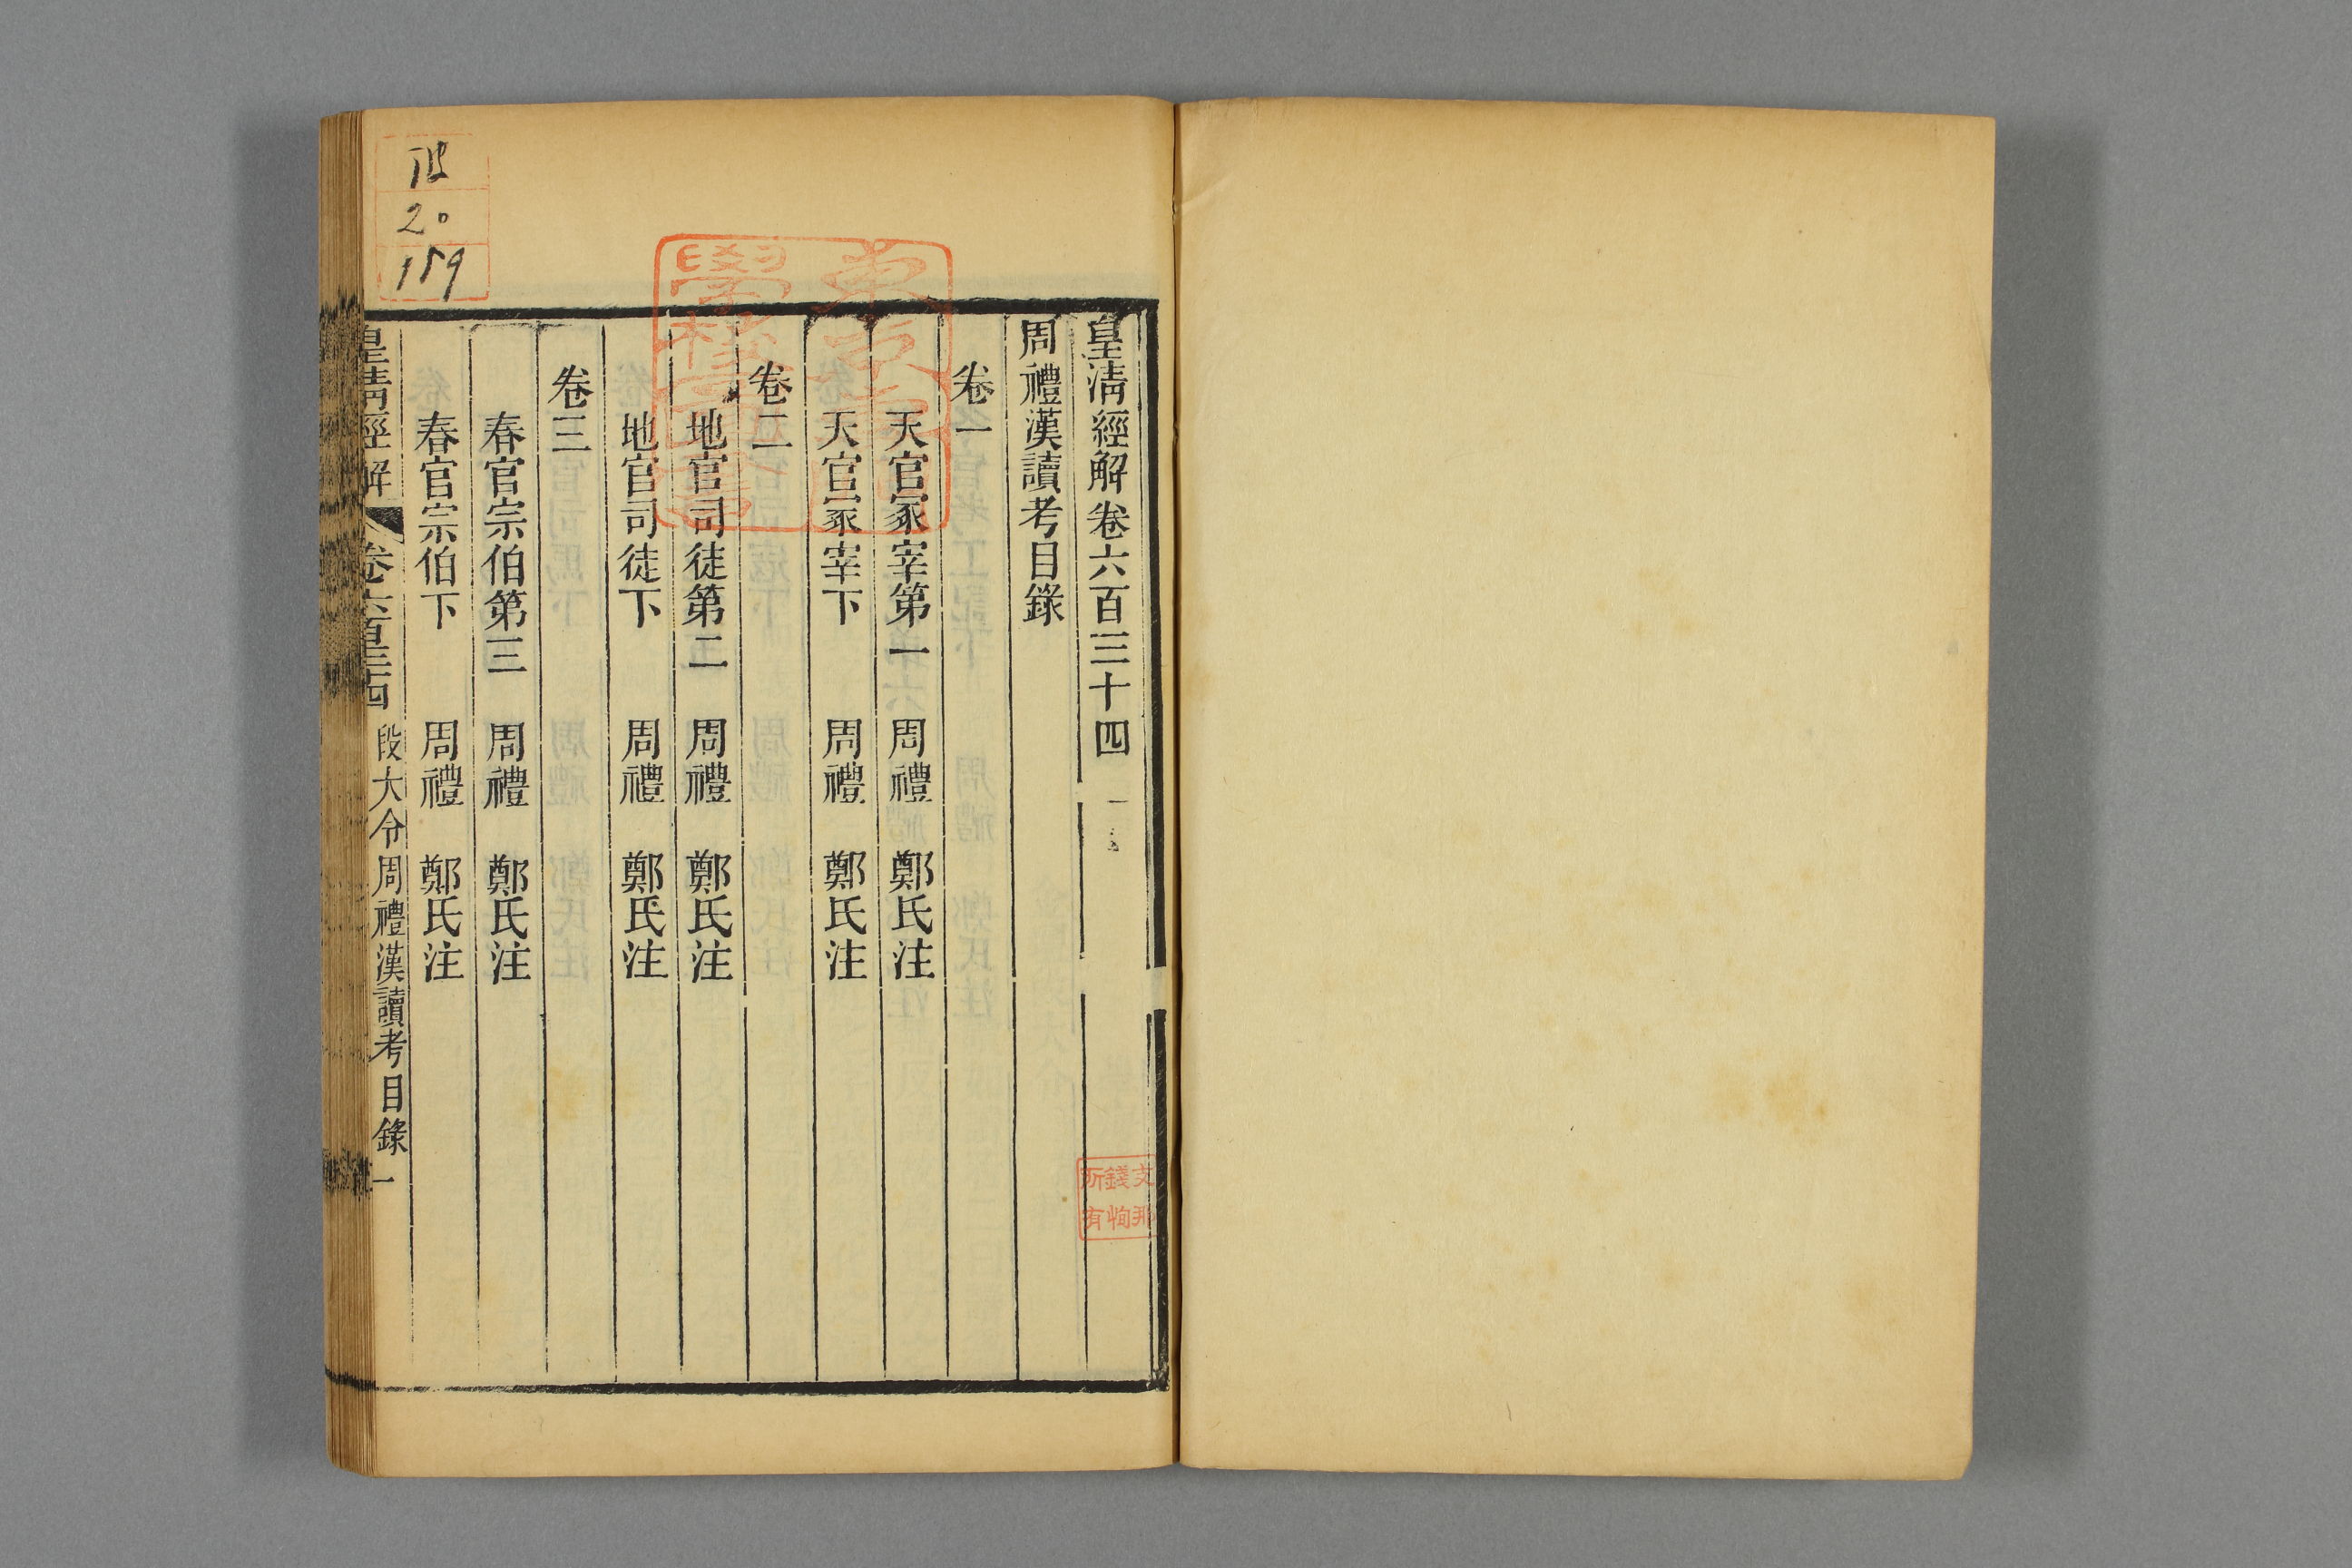 皇清經解卷六百三十四
周禮漢讀考目錄
卷一
天官冢宰第一　周禮　鄭氏注
天官冢宰下　周禮　鄭氏注
卷二
地官司徒第二　周禮　鄭氏注
地官司徒下　周禮　鄭氏注
卷三
春官宗伯第三　周禮　鄭氏注
春官宗伯下　周禮　鄭氏注
皇清經解　卷六百三十四　段大令周禮漢讀考目錄　一
20
159
支那
錢恂
所有